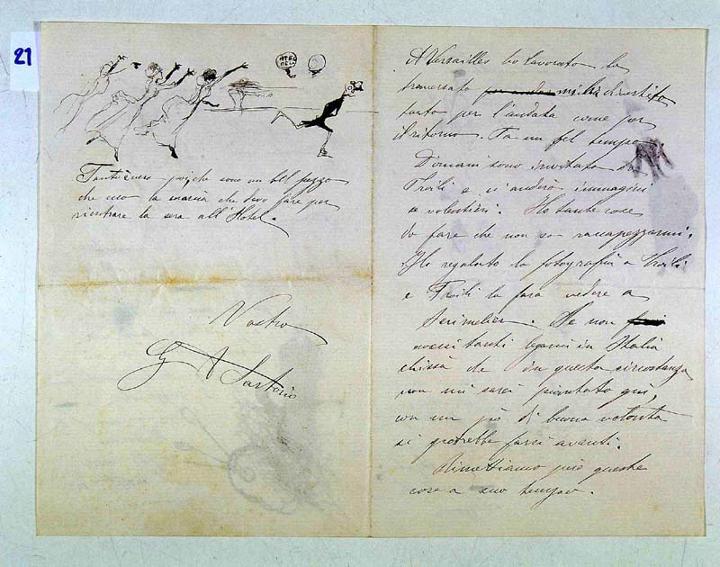 21
HOTEL
poichè sono un bel pezzo
che uso la marcia che devo fare per
rientrare la sera all'Hotel.
Vostro
G A Sartorio
A Versailles ho lavorato la
traversata mi ha divertito
tanto per l'andata come per
il ritorno. Fa un bel tempo.
Domani sono invitato da
Troili e ci andrò immagini
se volentieri. Ho tante cose
da fare che non so raccapezzarmi.
Ho regalato la fotografia a Troili
e Troili la farà vedere a
Se non
avessi tanti legami in Italia
chissà che in questa circostanza
non mi sarei piantato quì,
con un pò di buona volontà
si potrebbe farsi avanti.
Rimettiamo però queste
cose a suo tempo.